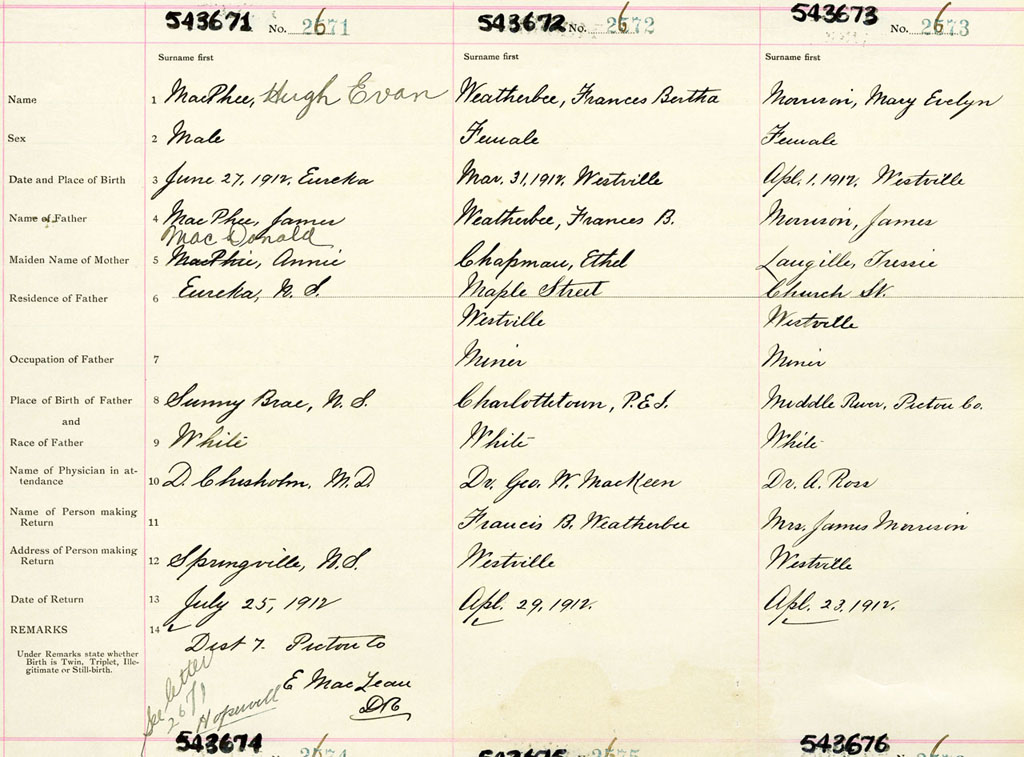 543671 No. 2671 543672 No. 2672 543673 No. 2673
Surname first Surname first Surname first
Name 1 MacPhee, Hugh Evan Weatherbee, Frances Bertha Morrison, Mary Evelyn
Sex 2 Male Female Female
Date and Place of Birth 3 June 27, 1912, Eureka Mar. 31, 1912, Westville Apl. 1, 1912, Westville
Name of Father 4 MacPhee, James Weatherbee, Frances B. Morrison, James
MacDonald
Maiden Name of Mother 5 MacPhie, Annie Chapman, Ethel Langille, Tressie
Residence of Father 6 Eureka, N. S. Maple Street Church St.
Westville Westville
Occupation of Father 7 Miner Miner
Place of Birth of Father 8 Sunny Brae, N. S. Charlottetown, P.E.I. Middle River, Pictou Co.
and
Race of Father 9 White White White
Name of Physician in at-
tendance 10 D. Chisholm, M.D. Dr. Geo. W. MacKeen Dr. A. Ross
Name of Person making
Return 11 Francis B. Weatherbee Mrs. James Morrison
Address of Person making
Return 12 Springville, N.S. Westville Westville
Date of Return 13 July 25, 1912 Apl. 29, 1912. Apl. 23, 1912.
REMARKS 14
Dist 7. Pictou Co
Under Remarks state whether
Birth is Twin, Triplet, Ille-
gitimate or Still-birth.
E MacLean
DR
See letter
2671
Hopewell
543674 6 2574 543675 6 2575 543676 6